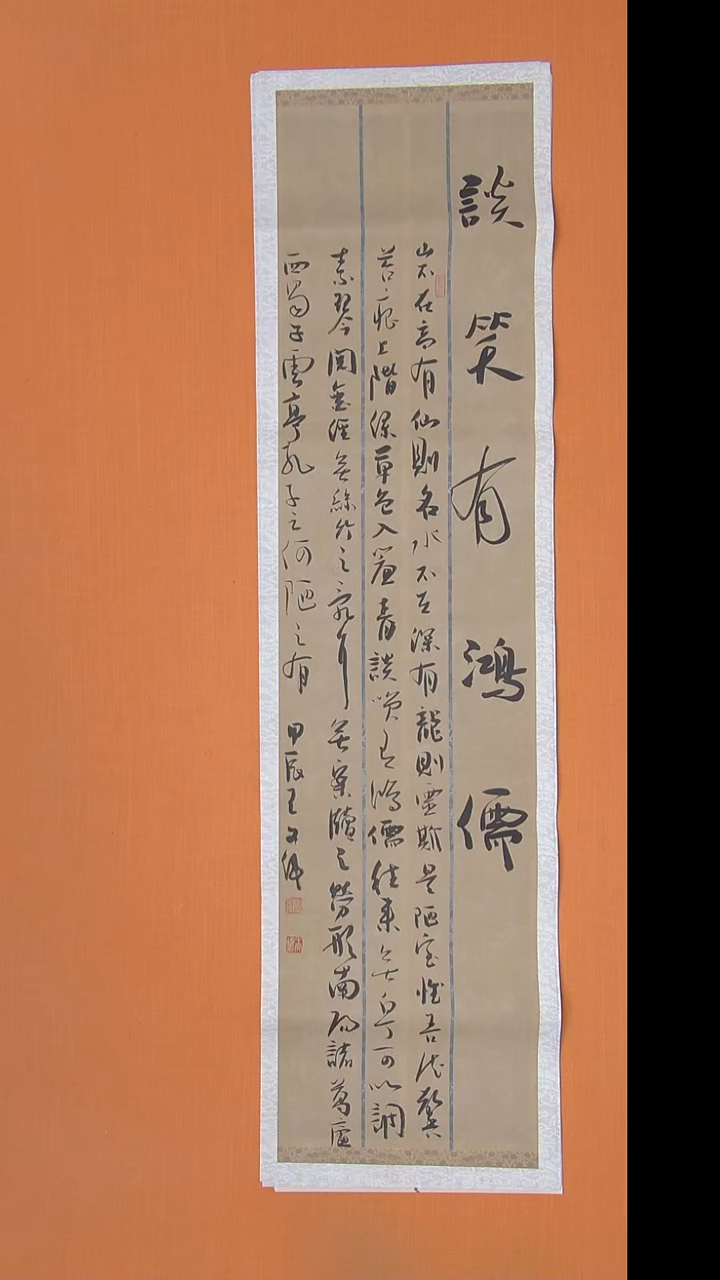 談笑有鴻儒
山不在高有仙則名水不在深有龍則靈斯是陋室惟吾德馨
苔痕上階綠草色入簾青談笑有鴻儒往來無白丁可以調
素琴閱金經無絲竹之亂耳無案牘之勞形南陽諸葛廬
西蜀子雲亭孔子云何陋之有 甲辰王文